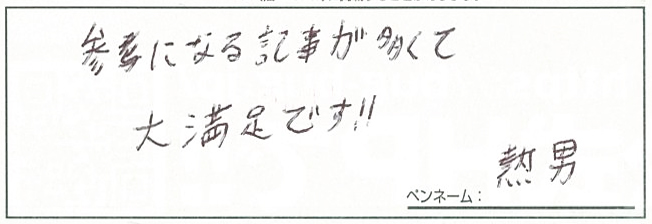 参考になる記事が多くて
大満足です!!
ペンネーム： 熱男